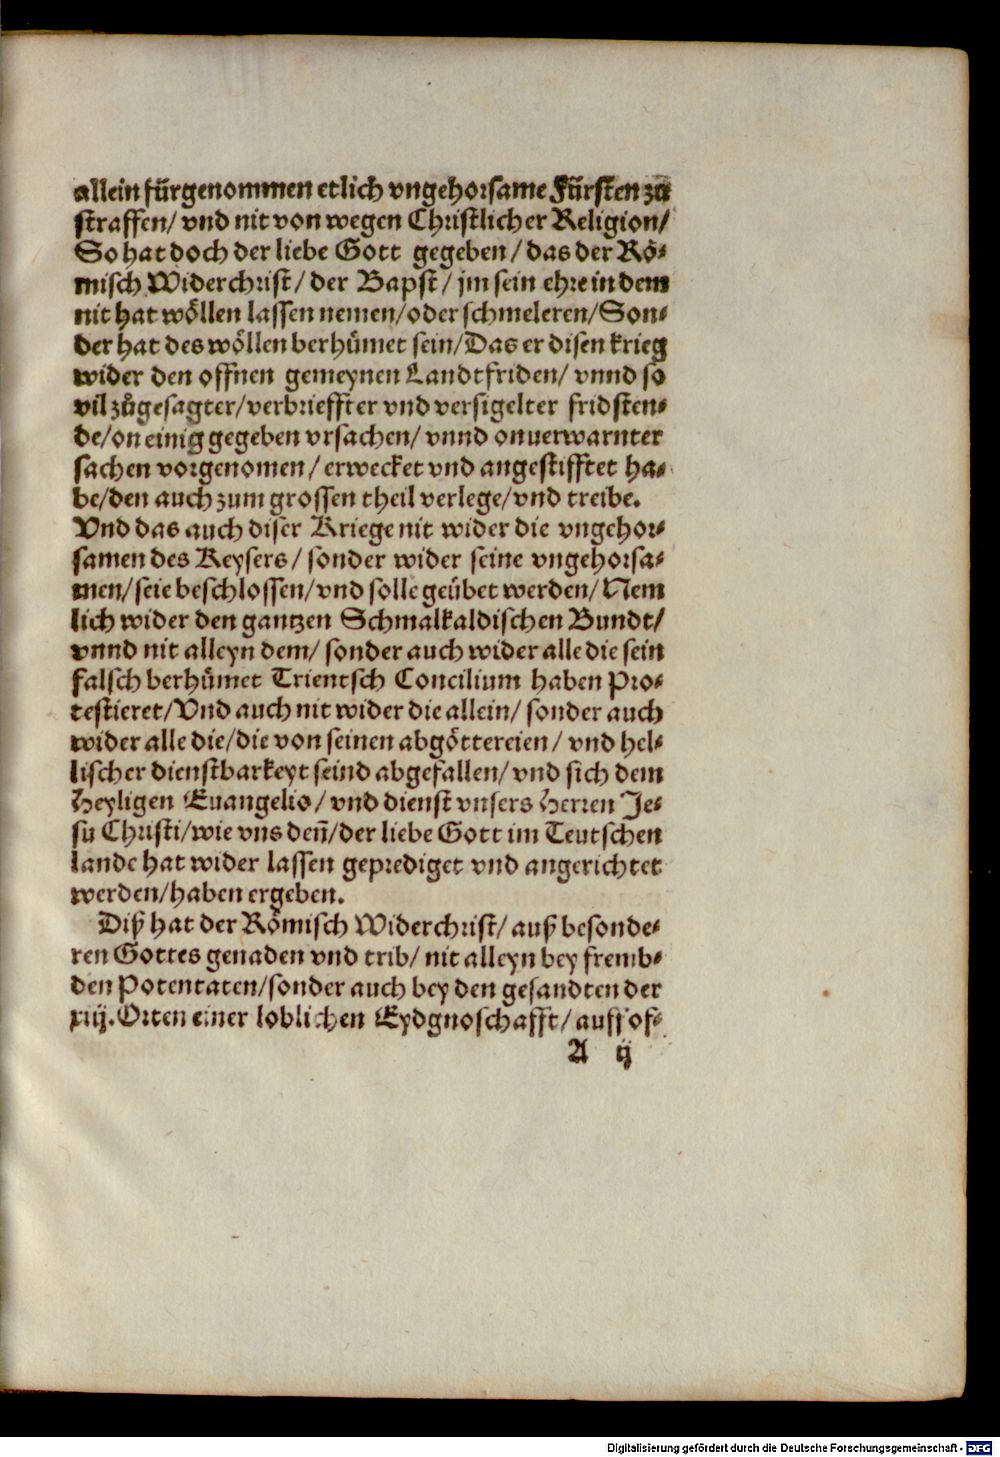 allein fürgenommen etlich vngehorsame Fürsten zů
straffen/ vnd nit von wegen Christlicher Religion/
So hat doch der liebe Gott gegeben/ das der Rö-
misch Widerchrist/ der Bapst/ jm sein ehre in dem
nit hat wöllen lassen nemen/ oder schmeleren/ Son-
der hat des wöllen berhümet sein/ Das er disen krieg
wider den offnen gemeynen Landtfriden/ vnnd so
vil zůgesagter/ verbrieffter vnd versigelter fridsten-
de/ on einig gegeben vrsachen/ vnnd onuerwarnter
sachen vorgenomen/ erwecket vnd angestifftet ha-
be/ den auch zum grossen theil verlege/ vnd treibe.
Vnd das auch diser Kriege nit wider die vngehor-
samen des Keysers/ sonder wider seine vngehorsa-
men/ seie beschlossen/ vnd solle geübet werden/ Nem
lich wider den gantzen Schmalkaldischen Bundt/
vnnd nit alleyn dem/ sonder auch wider alle die sein
falsch berhümet Trientsch Concilium haben Pro-
testieret/ Vnd auch nit wider die allein/ sonder auch
wider alle die/ die von seinen abgöttereien/ vnd hel-
lischer dienstbarkeyt seind abgefallen/ vnd sich dem
Heyligen Euangelio/ vnd dienst vnsers Herren Je-
su Christi/ wie vns deñ/ der liebe Gott im Teutschen
lande hat wider lassen geprediget vnd angerichtet
werden/ haben ergeben.
Diß hat der Römisch Widerchrist/ auß besonde-
ren Gottes genaden vnd trib/ nit alleyn bey fremb-
den Potentaten/ sonder auch bey den gesandten der
xiij. Orten einer loblichen Eydgnoschafft/ auff of-
A ij
Digitalisierung gefördert durch die Deutsche Forschungsgemeinschaft - DFG